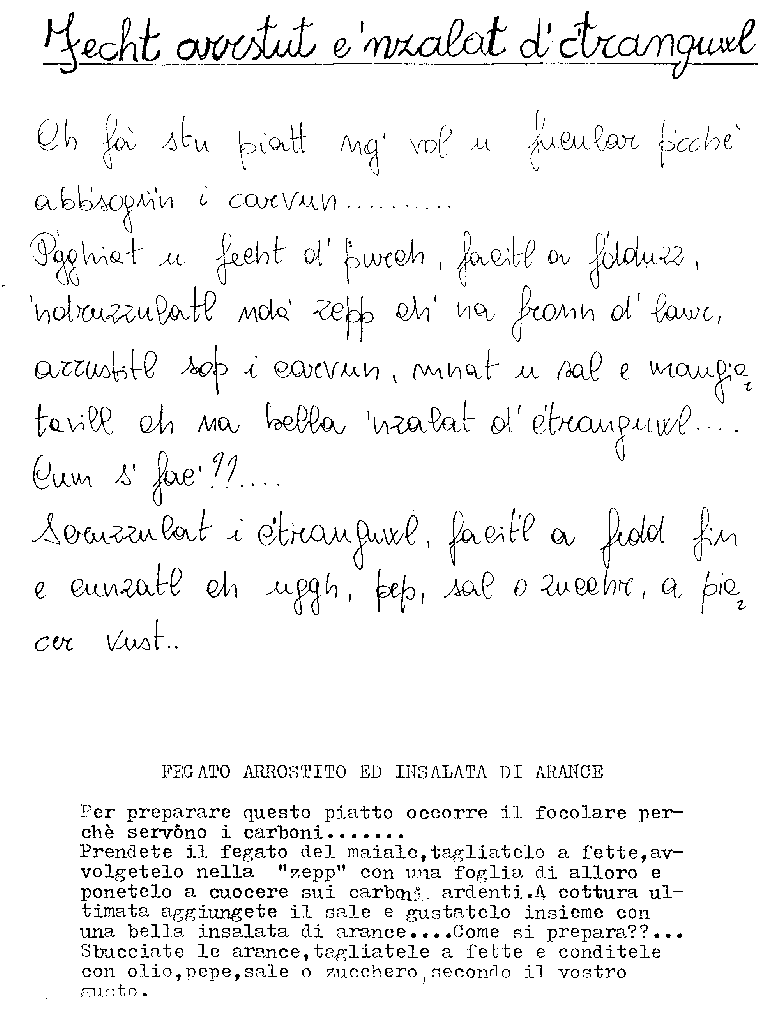 Fecht arrestut e 'nzalat d' c'tranguul
Ch fà stu piatt ng' vol u fucular p'cchè
abb'sogn'n i carvun..........
P'gghiat u fecht d' purch, facitl a f'dduzz,
'ndruzzulatl nda' zepp ch' na fronn d' laur,
arrustitl sop i carvun, m'nat u sal e mangia
tavill ch na bella 'nzalat d' c'tranguul....
Cum s' fac'??....
Scruzzulat i c'tranguul, facit'l a fedd fin
e cunzatl ch uggh, pep, sal o zucchr, a pia
cer vust..
FEGATO ARROSTITO ED INSALATA DI ARANCE
Per preparare questo piatto occorre il focolare per-
chè servôno i carboni.......
Prendete il fegato del maiale,tagliatelo a fette,av-
volgetelo nella "zepp" con una foglia di alloro e
ponetelo a cuocere sui carboni ardenti.A cottura ul-
timata aggiungete il sale e gustatelo insieme con
una bella insalata di arance....Come si prepara??...
Sbucciate le arance,tagliatele a fette e conditele
con olio,pepe,sale o zucchero,secondo il vostro
gusto.